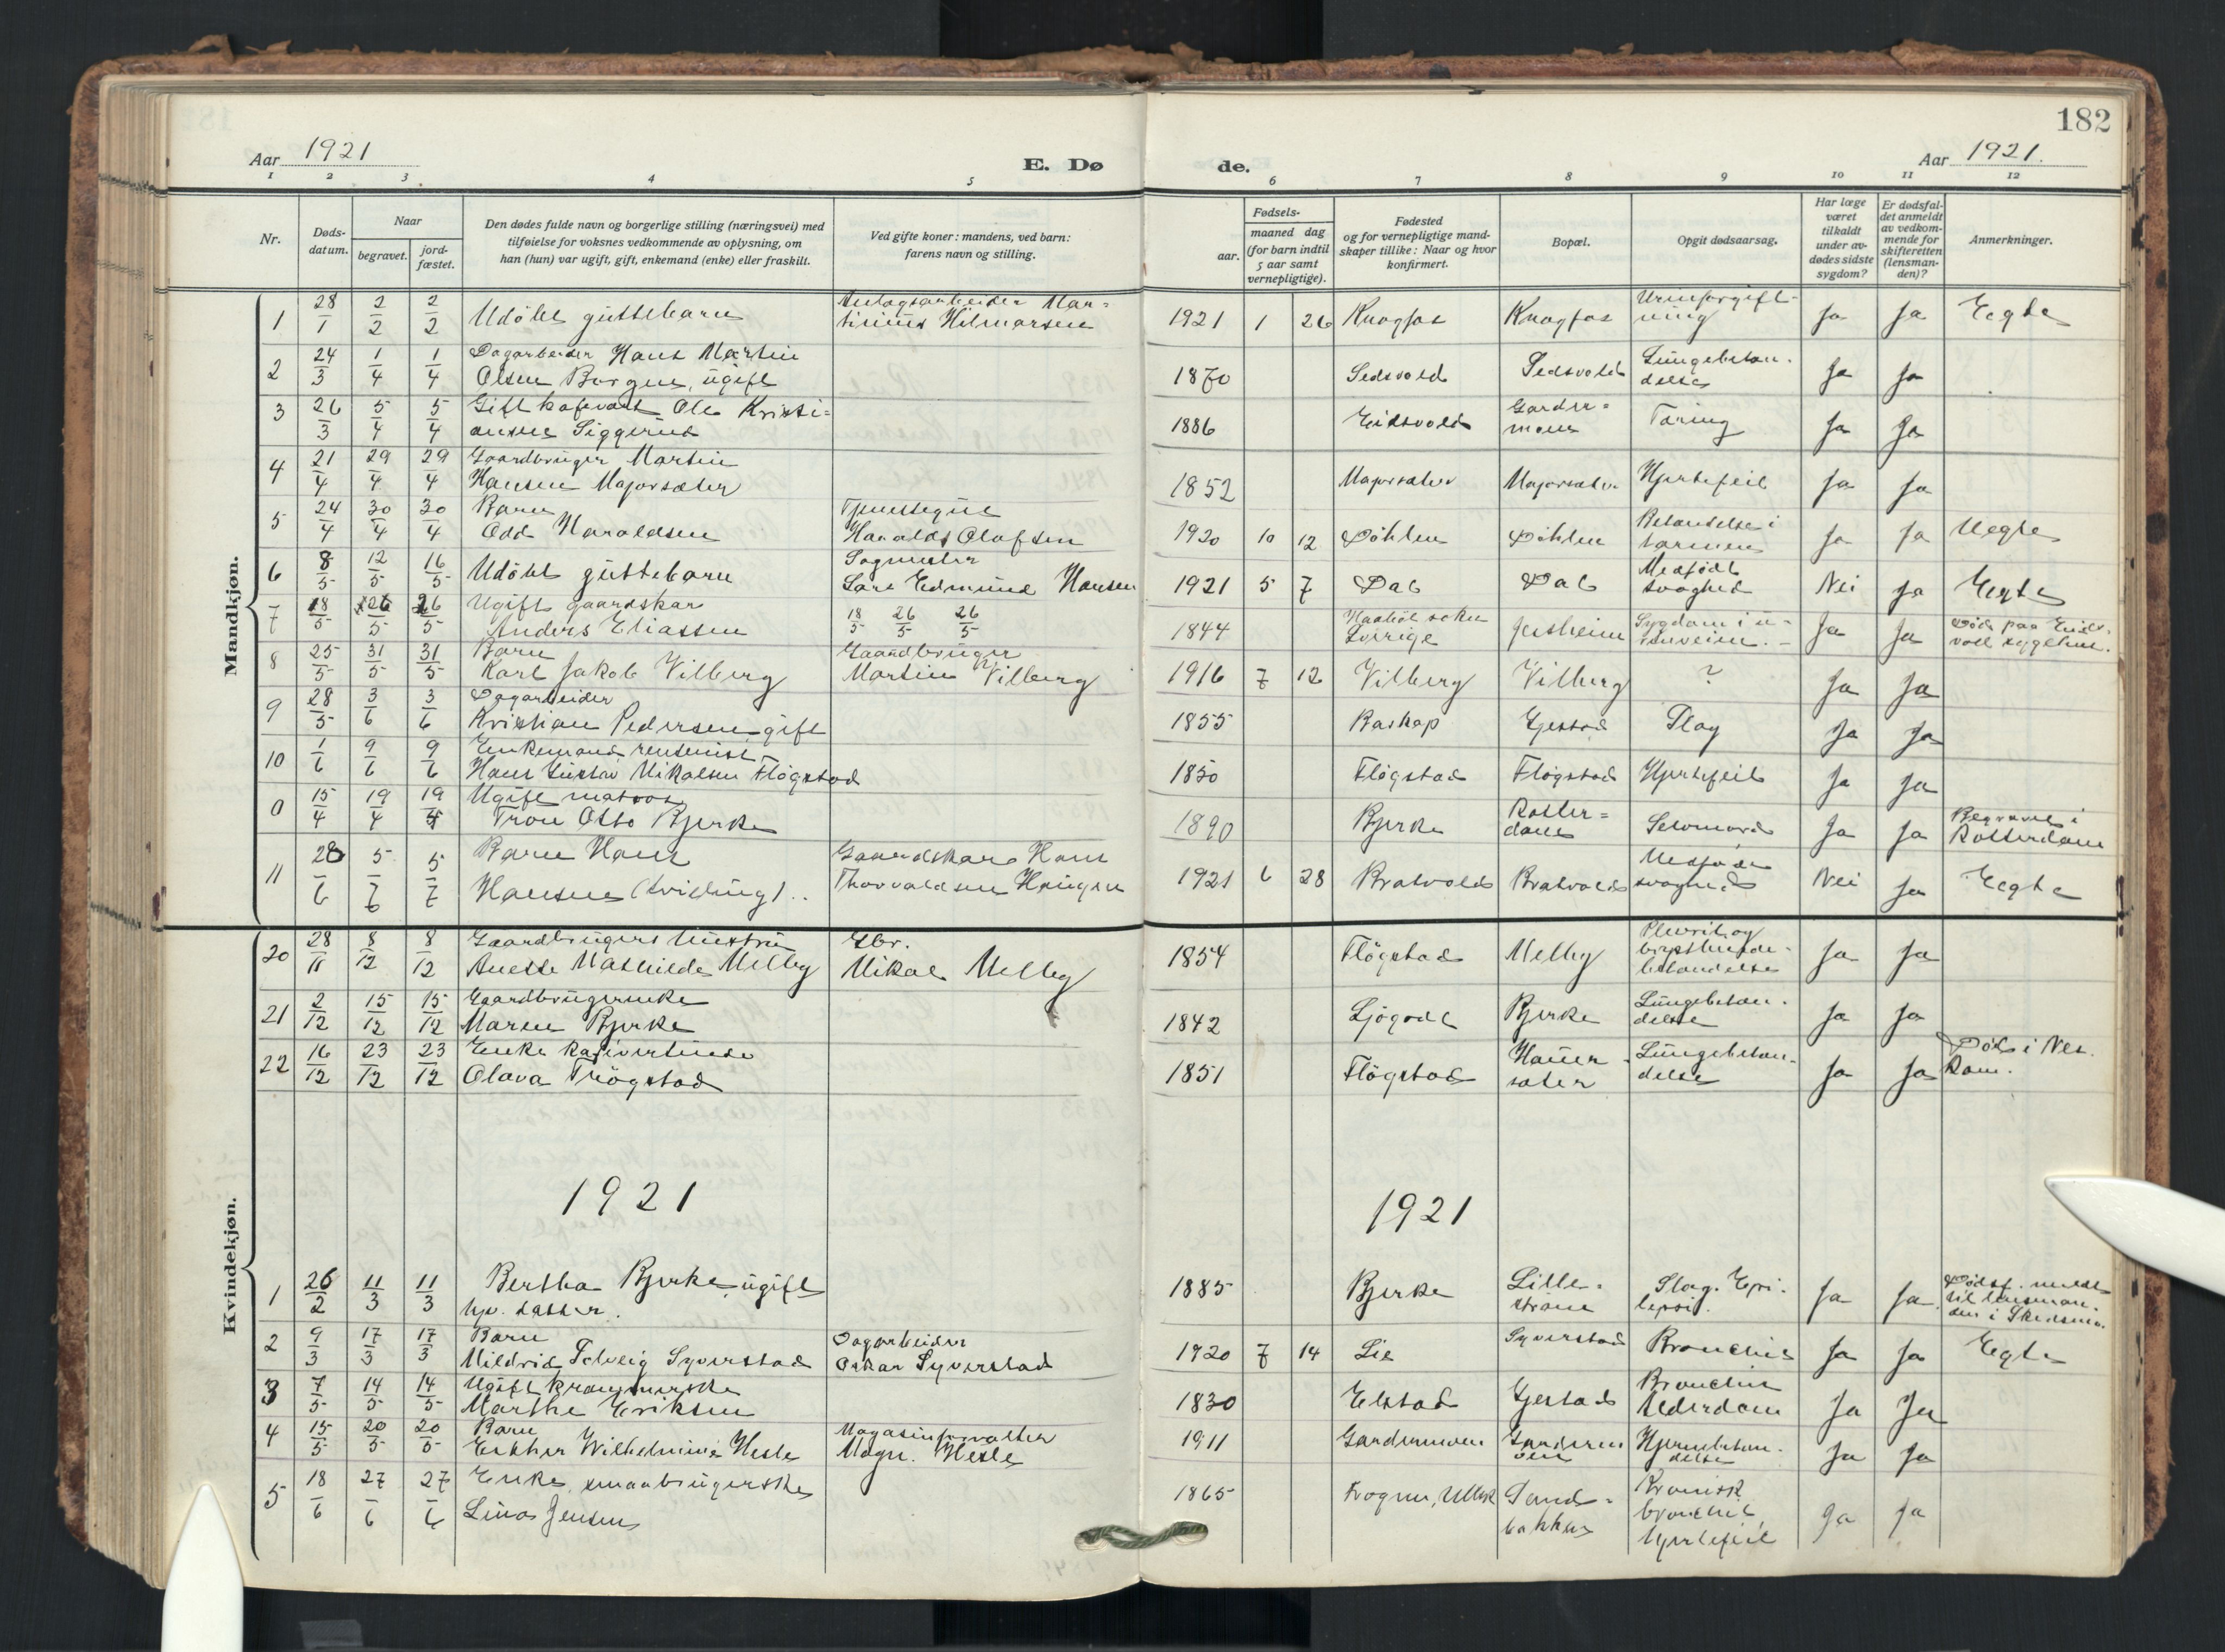 182
Aar 1921
E. Dø
de.
Aar 1921.
1 2 3 4 5 6 7 8 9 10 11 12
Nr.
Døds-
datum.
Naar
begravet.
jord-
fæstet.
Den dødes fulde navn og borgerlige stilling (næringsvei) med
tilføielse for voksnes vedkommende av oplysning, om
han (hun) var ugift, gift, enkemand (enke) eller fraskilt.
Ved gifte koner: mandens, ved barn:
farens navn og stilling.
Fødsels-
aar.
maaned dag
(for barn indtil
5 aar samt
vernepligtige).
Fødested
og for vernepligtige mand-
skaper tillike: Naar og hvor
konfirmert.
Bopæl.
Opgit dødsaarsag.
Har læge
været
tilkaldt
under av-
dødes sidste
sygdom?
Er dødsfal-
det anmeldt
av vedkom-
mende for
skifteretten
(lensman-
den)?
Anmerkninger.
Mandkjøn.
1 28/1 2/2 2/2 Udöbt guttebarn
Anlægsarbeider Mar-
tinius Hilmarsen
1921 1 26 Knagfos Knagfos
Urinforgift-
ning
Ja Ja Egte
2 24/3 1/4 1/4 Dagarbeider Hans Martin
Olsen Borgen, ugift
1870 Sedsvold Sedsvold
Lungebetæn-
delse
Ja Ja
3 26/3 5/4 5/4 Gift Ole Kristi-
ansen Siggerud
1886 Eidsvold
Garder-
moen
Tæring Ja Ja
4 21/4 29/4 29/4 Gaardbruger Martin
Hansen Majorsæter
1852 Majorsæter Majorsæter Hjertefeil Ja Ja
5 24/4 30/4 30/4 Barn
Odd Haraldsen
Harald Olafsen
1920 10 12 Döhlen Döhlen
Betændelse i
tarmen
Ja Ja Uegte
6 8/5 12/5 16/5 Udöbt guttebarn
Sagmester
Lars Edmund Hansen
1921 5 7 Dal Dal
Medfödt
svaghed
Nei Ja Egte
7 18/5 26/5 26/5 Ugift gaardskar
Anders Eliassen
18/5 26/5 26/5
1844
Sverige
Jessheim
Sygdom i u-
rinveien.
Ja Ja
Död paa Eids-
vold sygehus.
8 25/5 31/5 31/5 Barn
Karl Jakob Vilberg
Gaardbruger
Martin Vilberg
1916 7 12 Vilberg Vilberg ? Ja Ja
9 28/5 3/6 3/6 Dagarbeider
Kristian Pedersen gift
1855 Gjestad Slag Ja Ja
10 1/6 9/6 9/6 Enkemand rentenist
Hans Gustav Nikolsen Flögstad
1850 Flögstad Flögstad Hjertefeil Ja Ja
0 15/4 19/4 19/4 Ugift matros
Tron Otto Bjerke
1890 Bjerke
Rotter-
dam
Selvmord Ja Ja
Begravet i
Rotterdam
11 28/6 5/7 5/7 Barn Hans
Hansen (tvilling)
Gaardskar Hans
Thorvaldsen Haugen
1921 6 28 Bratvold Bratvold
Medfödt
svaghed
Nei Ja Egte
Kvindekjøn.
20 28/11 8/12 8/12 Gaardbrugers hustru
Anette Mathilde Melby
Gbr.
Nikol Melby
1854 Flögstad Melby
Plevrit og
brysthinde-
betændelse
Ja Ja
21 2/12 15/12 15/12 Gaardbrugerenke
Maren Bjerke
1842 Ljögodt Bjerke
Lungebetæn-
delse
Ja Ja
22 16/12 23/12 23/12 Enke
Olava Trögstad
1851 Flögstad
Hauer-
sæter
Lungebetæn-
delse
Ja Ja
Död i Nes.
1921
1921
1 26/2 11/3 11/3 Bertha Bjerke, ugift
hjv. datter.
1885 Bjerke
Lille-
ström
Slag. Epi-
lepsi.
Ja Ja.
Dödsf. meldt
til lensman-
den i Skedsmo.
2 9/3 17/3 17/3 Barn
Mildrid Solveig Syverstad
Dagarbeider
Oskar Syverstad
1920 7 14 Lie Syverstad Bronchit Ja Ja Egte
3 7/5 14/5 14/5 Ugift
Marthe Eriksen
1830 Elstad Gjestad
Bronchit
Alderdom
Ja Ja
4 15/5 20/5 20/5 Barn
Esther Wilhelmine Hesle
Magasinforvalter
Magn. Hesle
1911 Gardermoen
Garderm
oen
Hjernebetæn-
delse
Ja Ja
5 18/6 27/6 27/6 Enke, smaabrugerske
Lina Jensen
1865 Frogner, Ullens.
Sand-
bakken
Kronisk
bronchit,
hjertefeil
Ja Ja